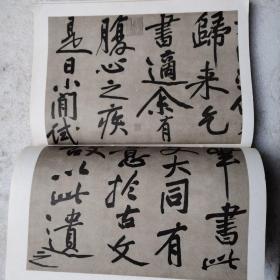 歸来乞
書適余有
腹心之疾
是日小閒試
書此
文大同有
意於古文
故以此遺
之